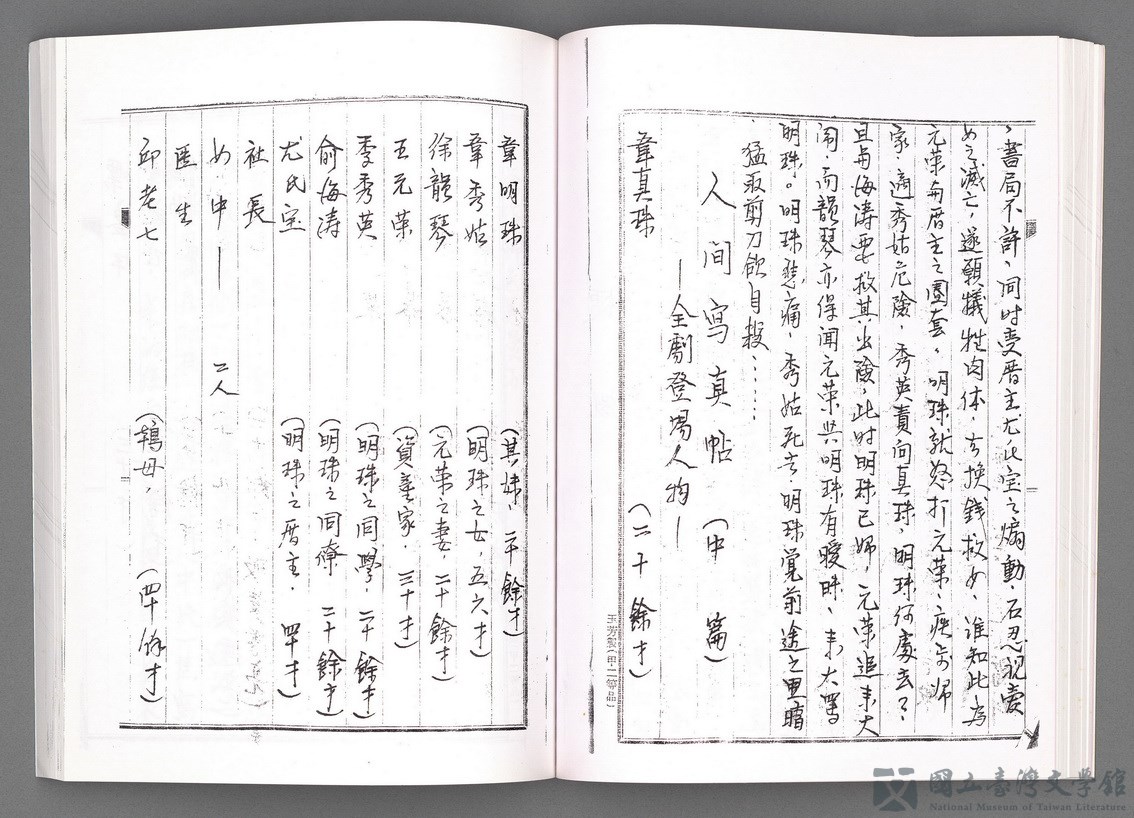 、書局不許、同時受厝主尤氏宝之煽動，不忍視愛
女之滅亡，遂願犧牲肉体，去換錢救女，誰知此為
元荣與厝主之圈套，明珠就怒打元荣，疾奔归
家，適秀姑危險，秀英責问真珠，明珠何處去？
且與海涛要救其出險，此时明珠已婦，元荣追来大
闹，而韻琴亦得闻元荣與明珠有曖昧，来大罵
明珠。明珠悲痛，秀姑死去，明珠覚前途之黑暗
猛取剪刀欲自殺……
人间寫真帖（中篇）
—全劇登場人物—
韋真珠（二十餘才）
玉芳製（甲二等品）
韋明珠（其妹，二十餘才）
韋秀姑（明珠之女，五六才）
徐韻琴（元荣之妻，二十餘才）
王元荣（資産家，三十才）
季秀英（明珠之同學，二十餘才）
俞海涛（明珠之同僚 二十餘才）
尤氏宝（明珠之厝主，四十才）
社長
女中— 二人
医生
邱老七（鴇母，（四十餘才）
國立臺灣文學館
National Museum of Taiwan Literature